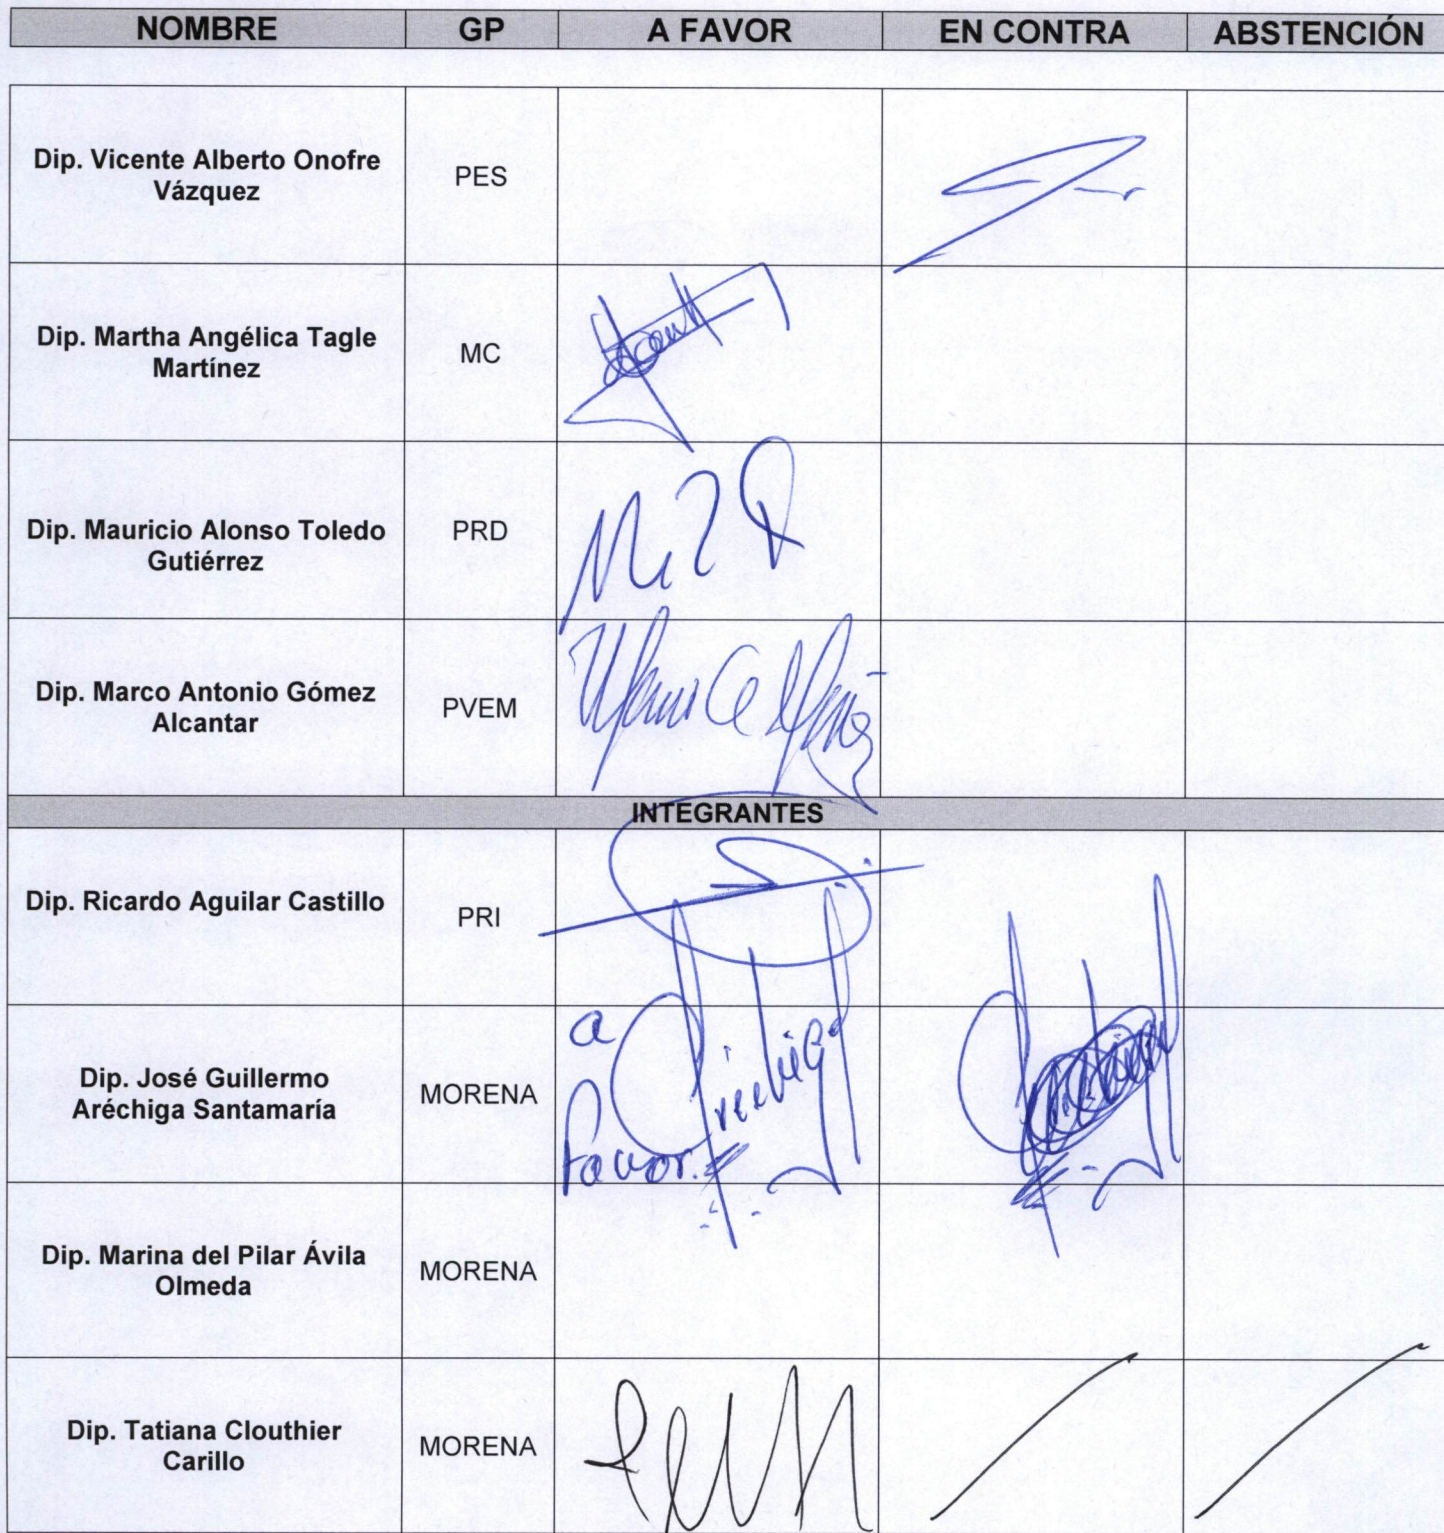 NOMBRE GP A FAVOR EN CONTRA ABSTENCIÓN
Dip. Vicente Alberto Onofre
Vázquez
PES
Dip. Martha Angélica Tagle
Martínez
MC
Dip. Mauricio Alonso Toledo
Gutiérrez
PRD
Dip. Marco Antonio Gómez
Alcantar
PVEM
INTEGRANTES
Dip. Ricardo Aguilar Castillo
PRI
Dip. José Guillermo
Aréchiga Santamaría
MORENA
a
favor.
Dip. Marina del Pilar Ávila
Olmeda
MORENA
Dip. Tatiana Clouthier
Carillo
MORENA